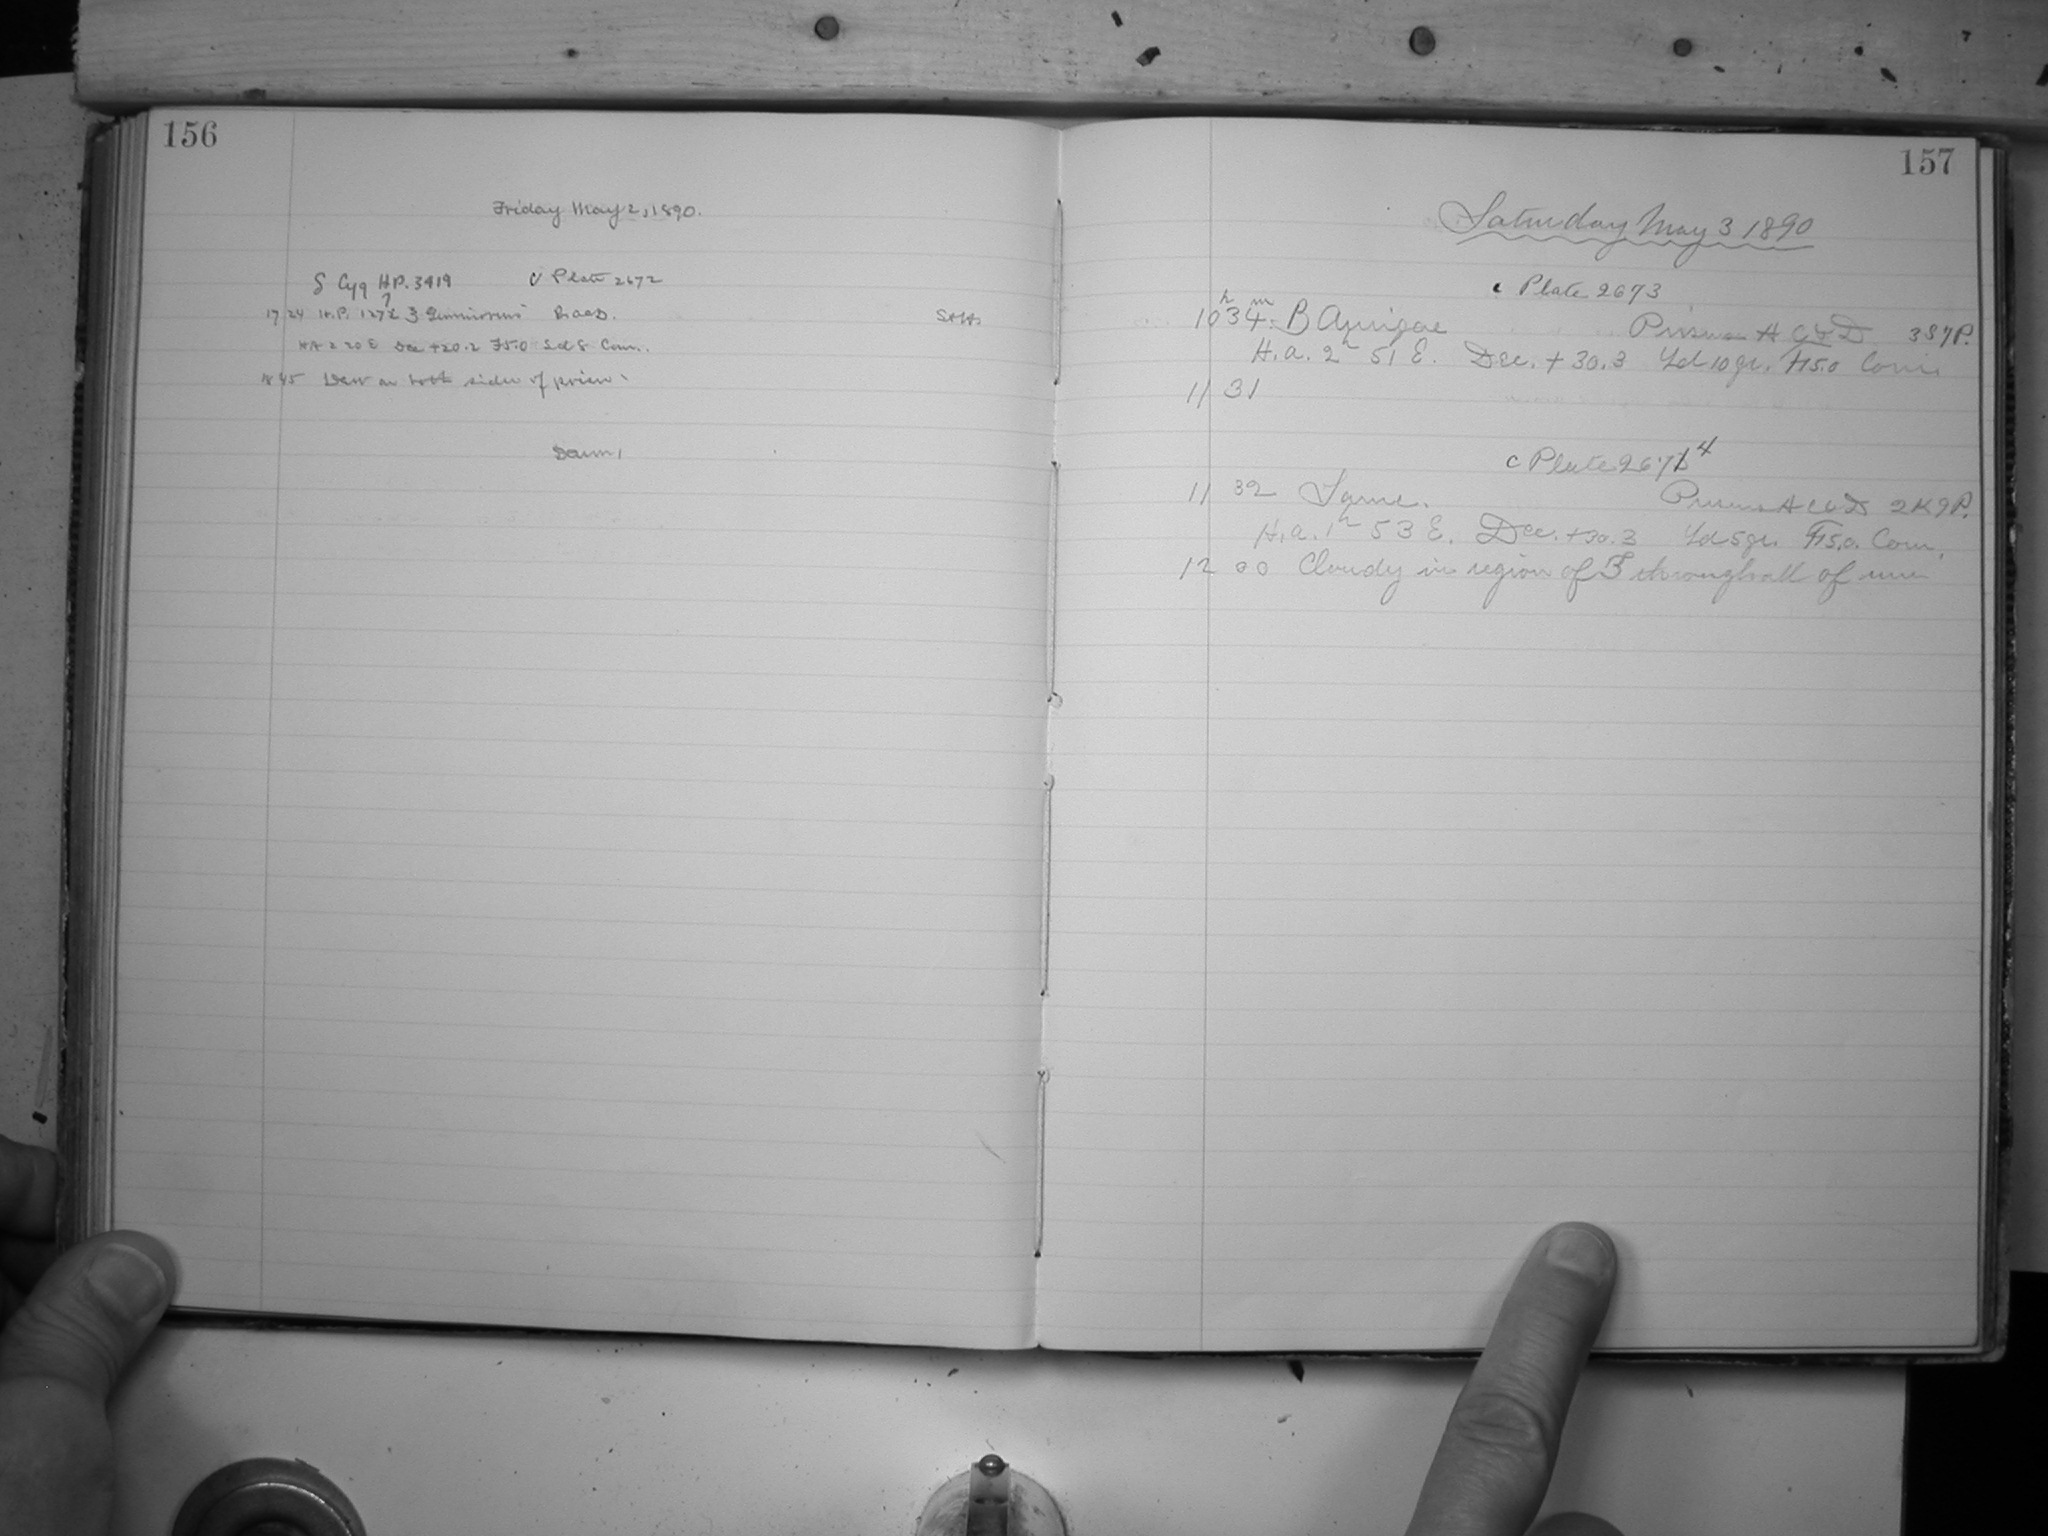 156
Friday May 2, 1890.
δ Cyg H.P. 3419 c Plate 2672
?
17 24 H.P. 127
HA 2 20 E Dec +20.2 F5.0 Com.
Dew on both sides of prism
Dawn
157
Saturday May 3 1890
c Plate 2673
10h 34m B Aurigae Prisms A C & D 387P.
H.a. 2h 51 E. Dec. + 30.3 Yd 10 gr. F15.0 Com
11 31
c Plate 267 4
11 32 Same. Prisms A C & D 2K9P.
H.a. 1h 53 E. Dec. +30.3 Yd 5 gr. F15.0. Com.
12 00 Cloudy in region of throughout of